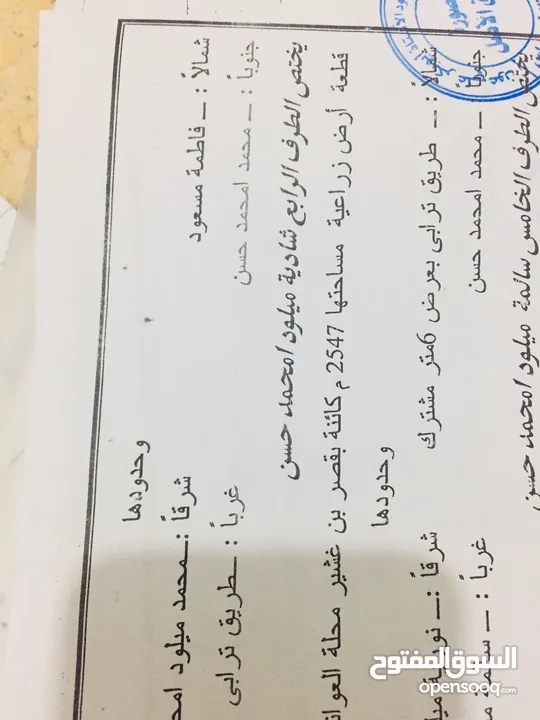 وحدودها
شمالاً : ــ فاطمة مسعود شرقاً : ــ محمد ميلود
جنوباً : ــ محمد امحمد حسن غرباً : ــ طريق ترابى
يختص الطرف الرابع شادية ميلود امحمد حسن
قطعة أرض زراعية مساحتها 2547 م كائنة بقصر بن غشير محلة
وحدودها
شمالاً : ــ طريق ترابى بعرض 6متر مشترك شرقاً : ــ
جنوباً : ــ محمد امحمد حسن غرباً : ــ
يختص الطرف الخامس سالمة ميلود امحمد حسن
السوق المفتوح
opensooq.com